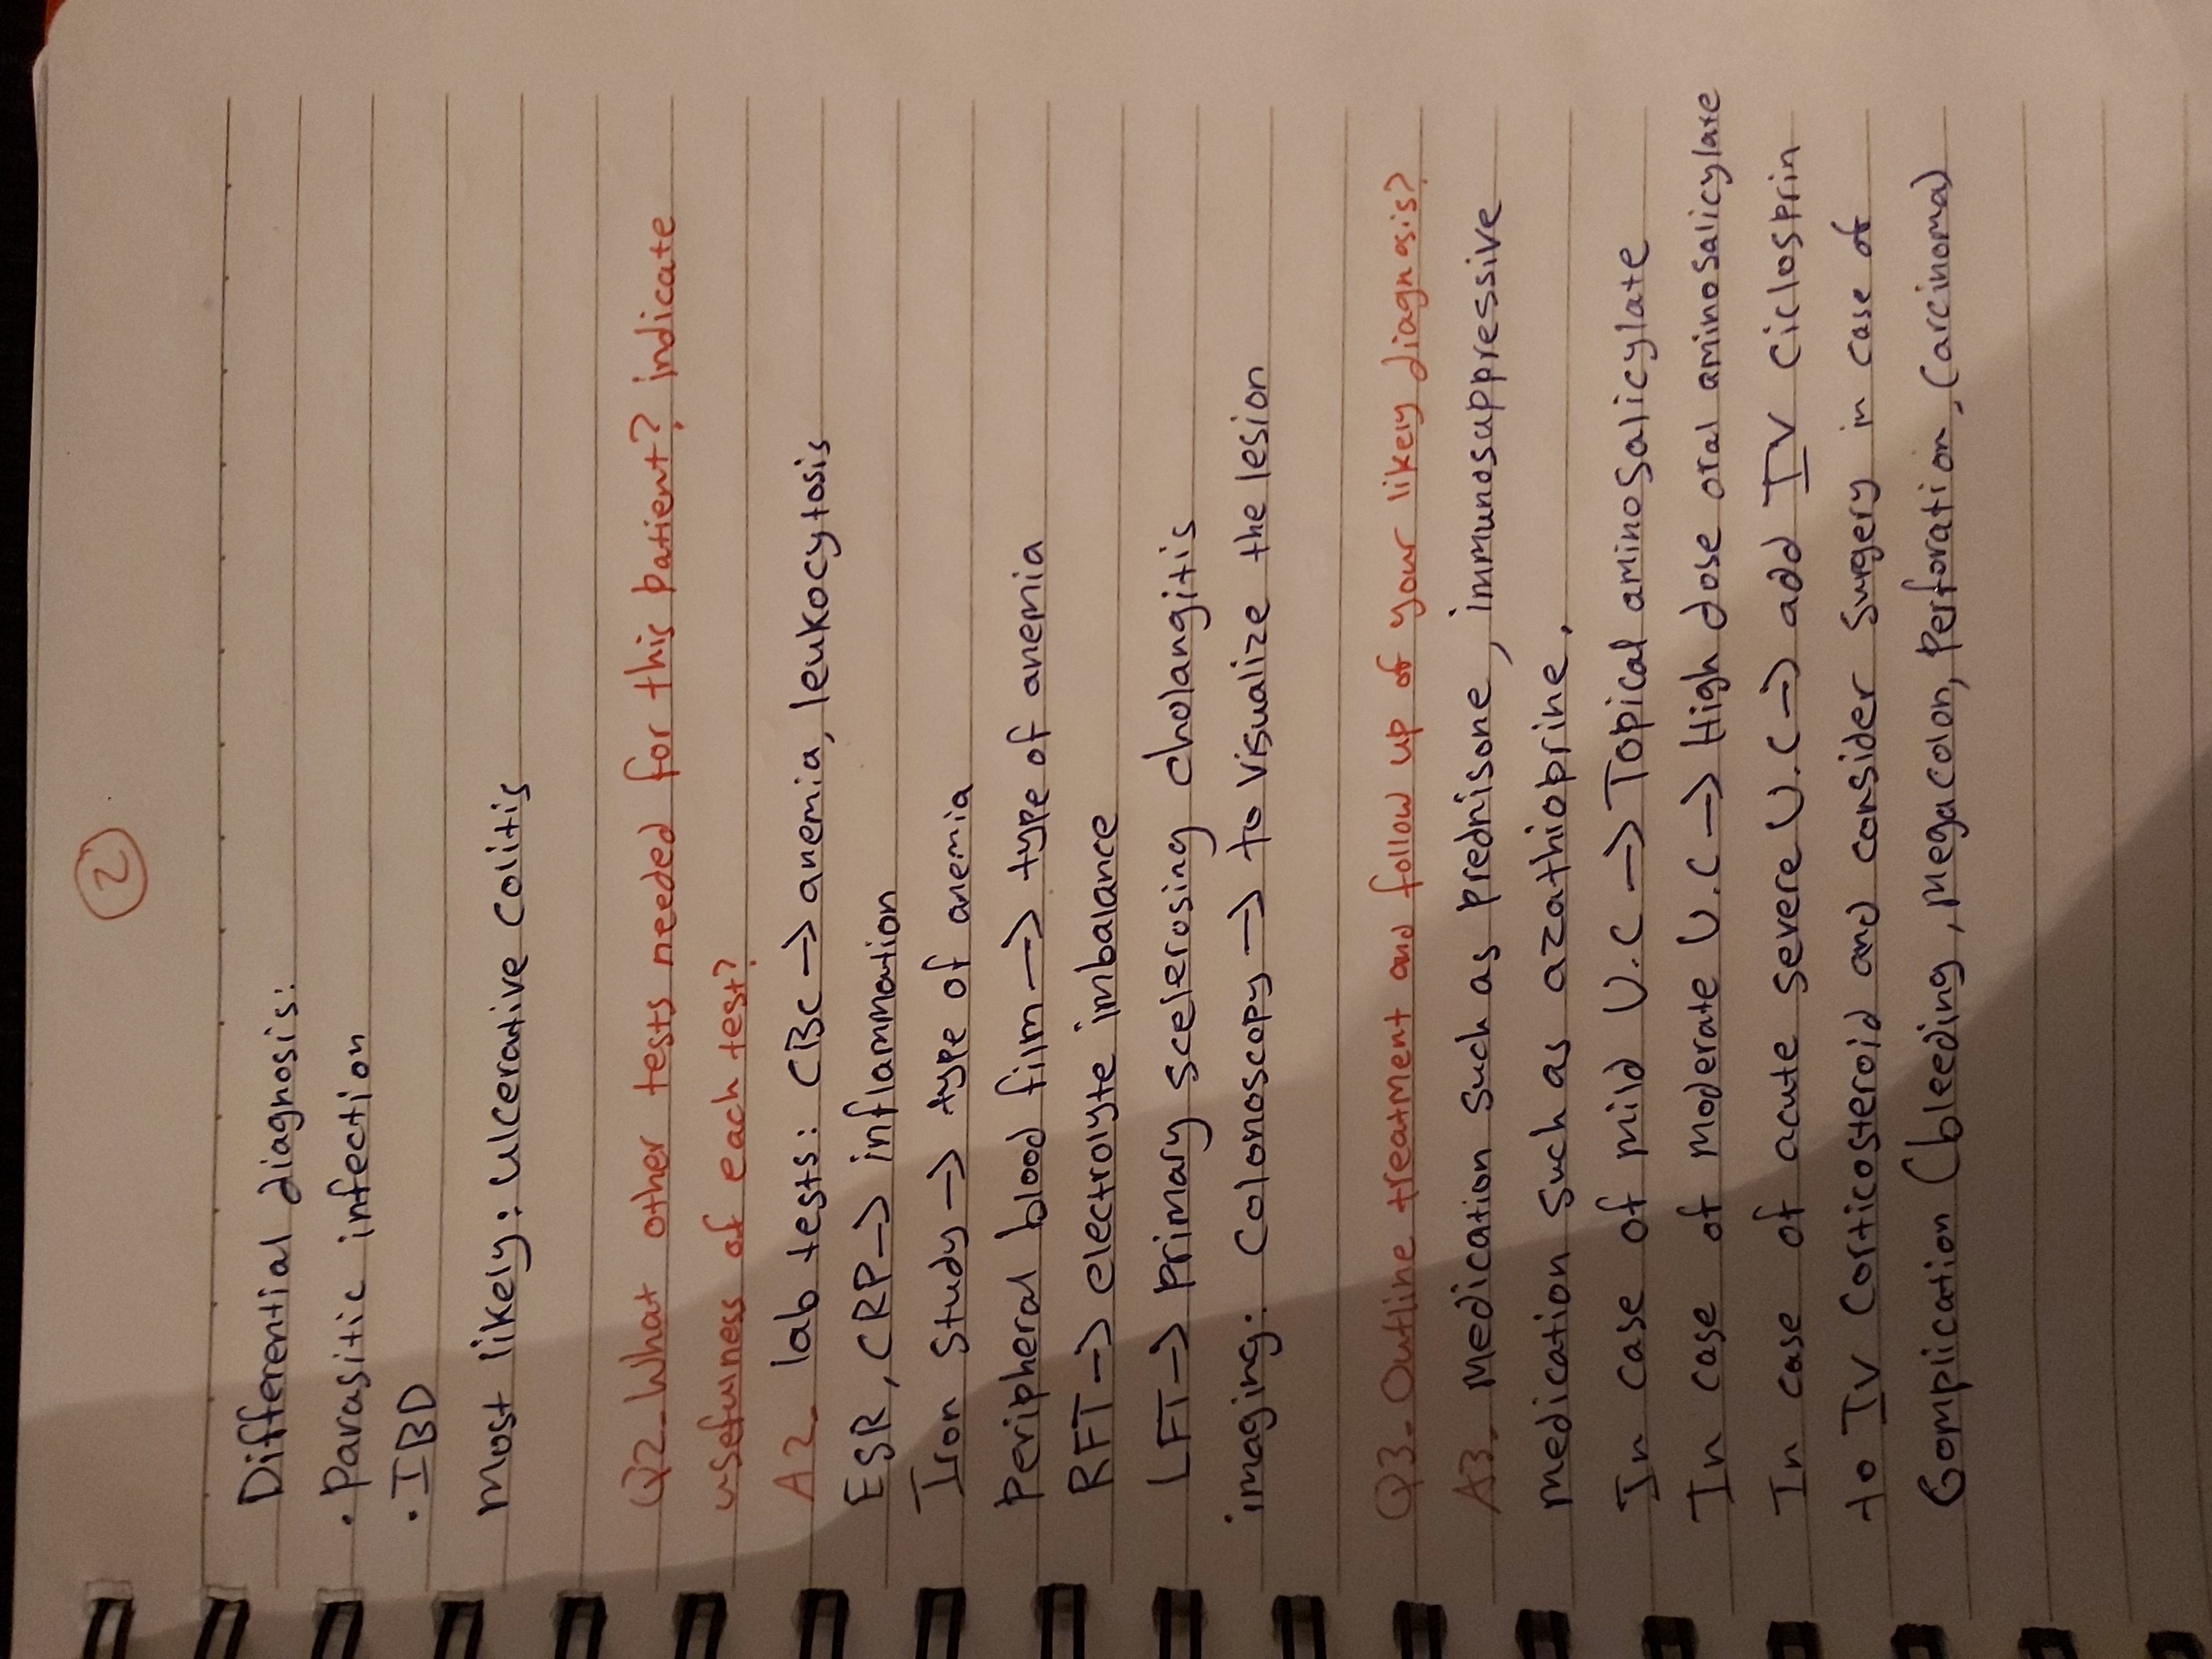 2
Differential diagnosis:
. Parasitic infection
. IBD
Most likely: ulcerative colitis
Q2_ What other tests needed for this patient? indicate
usefulness of each test?
A2_ lab tests: CBC → anemia, leukocytosis
ESR, CRP → inflammation
Iron study → type of anemia
Peripheral blood film → type of anemia
RFT → electrolyte imbalance
LFT → Primary scelerosing cholangitis
imaging: Colonoscopy → to visualize the lesion
Q3_ Outline treatment and follow up of your likely diagnosis?
A3_ Medication such as prednisone, immunosuppressive
medication such as azathioprine.
In case of mild U.C → Topical aminosalicylate
In case of moderate U.C → High dose oral aminosalicylate
In case of acute severe U.C → add IV ciclosprin
to IV Corticosteroid and consider surgery in case of
Complication (bleeding, megacolon, Perforation, Carcinoma)